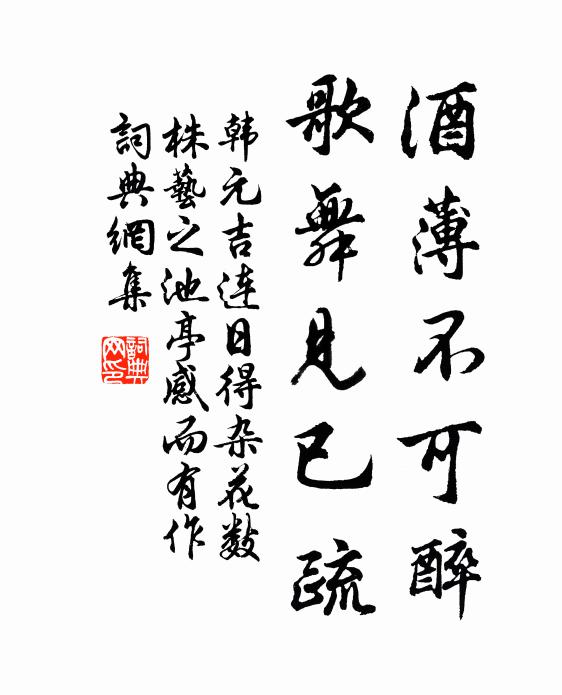 酒薄不可醉
歌舞見已疏
韩元吉連日得杂花数
株藝之池亭感而有作
詞典網集
詞典网印